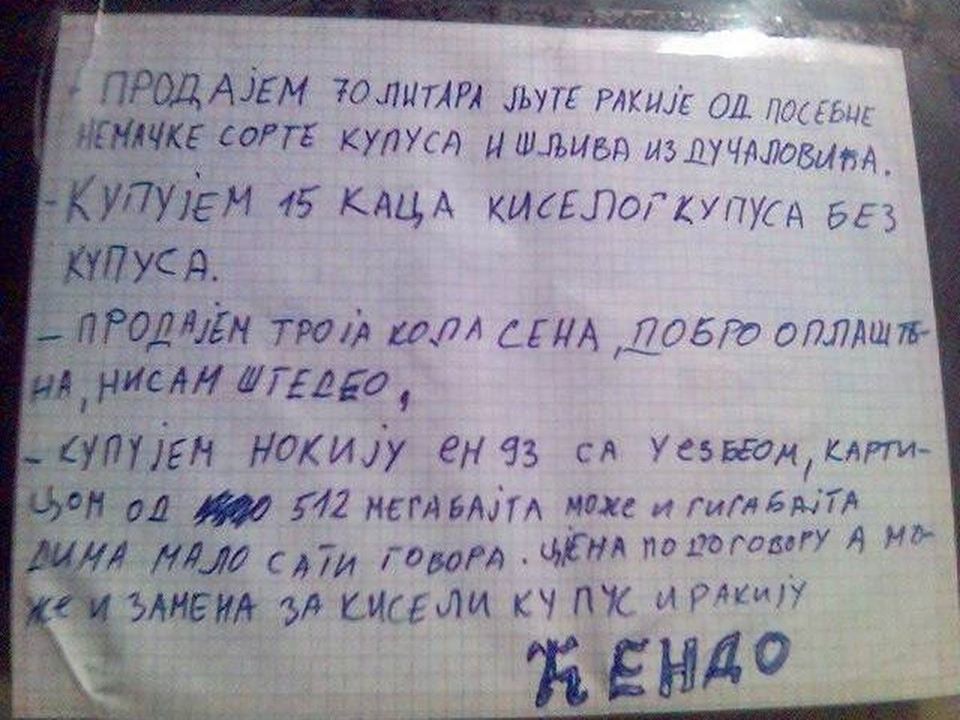 - ПРОДАЈЕМ 70 ЛИТАРА ЉУТЕ РАКИЈЕ ОД ПОСЕБНЕ
НЕМАЧКЕ СОРТЕ КУПУСА И ШЉИВА ИЗ ДУЧАЛОВИЋА.
- КУПУЈЕМ 15 КАЦА КИСЕЛОГ КУПУСА БЕЗ
КУПУСА.
- ПРОДАЈЕМ ТРОЈА КОЛА СЕНА, ДОБРО ОПЛАШЋЕ-
НА, НИСАМ ШТЕДЕО,
- КУПУЈЕМ НОКИЈУ ЕН 93 СА УЕЗБЕОМ, КАРТИ-
ЦОМ ОД 512 МЕГАБАЈТА МОЖЕ И ГИГАБАЈТА
ДИМА МАЛО САТИ ГОВОРА. ЦЈЕНА ПО ДОГОВОРУ А МО-
ЖЕ И ЗАМЕНА ЗА КИСЕЛИ КУПУС И РАКИЈУ
ЂЕНДО